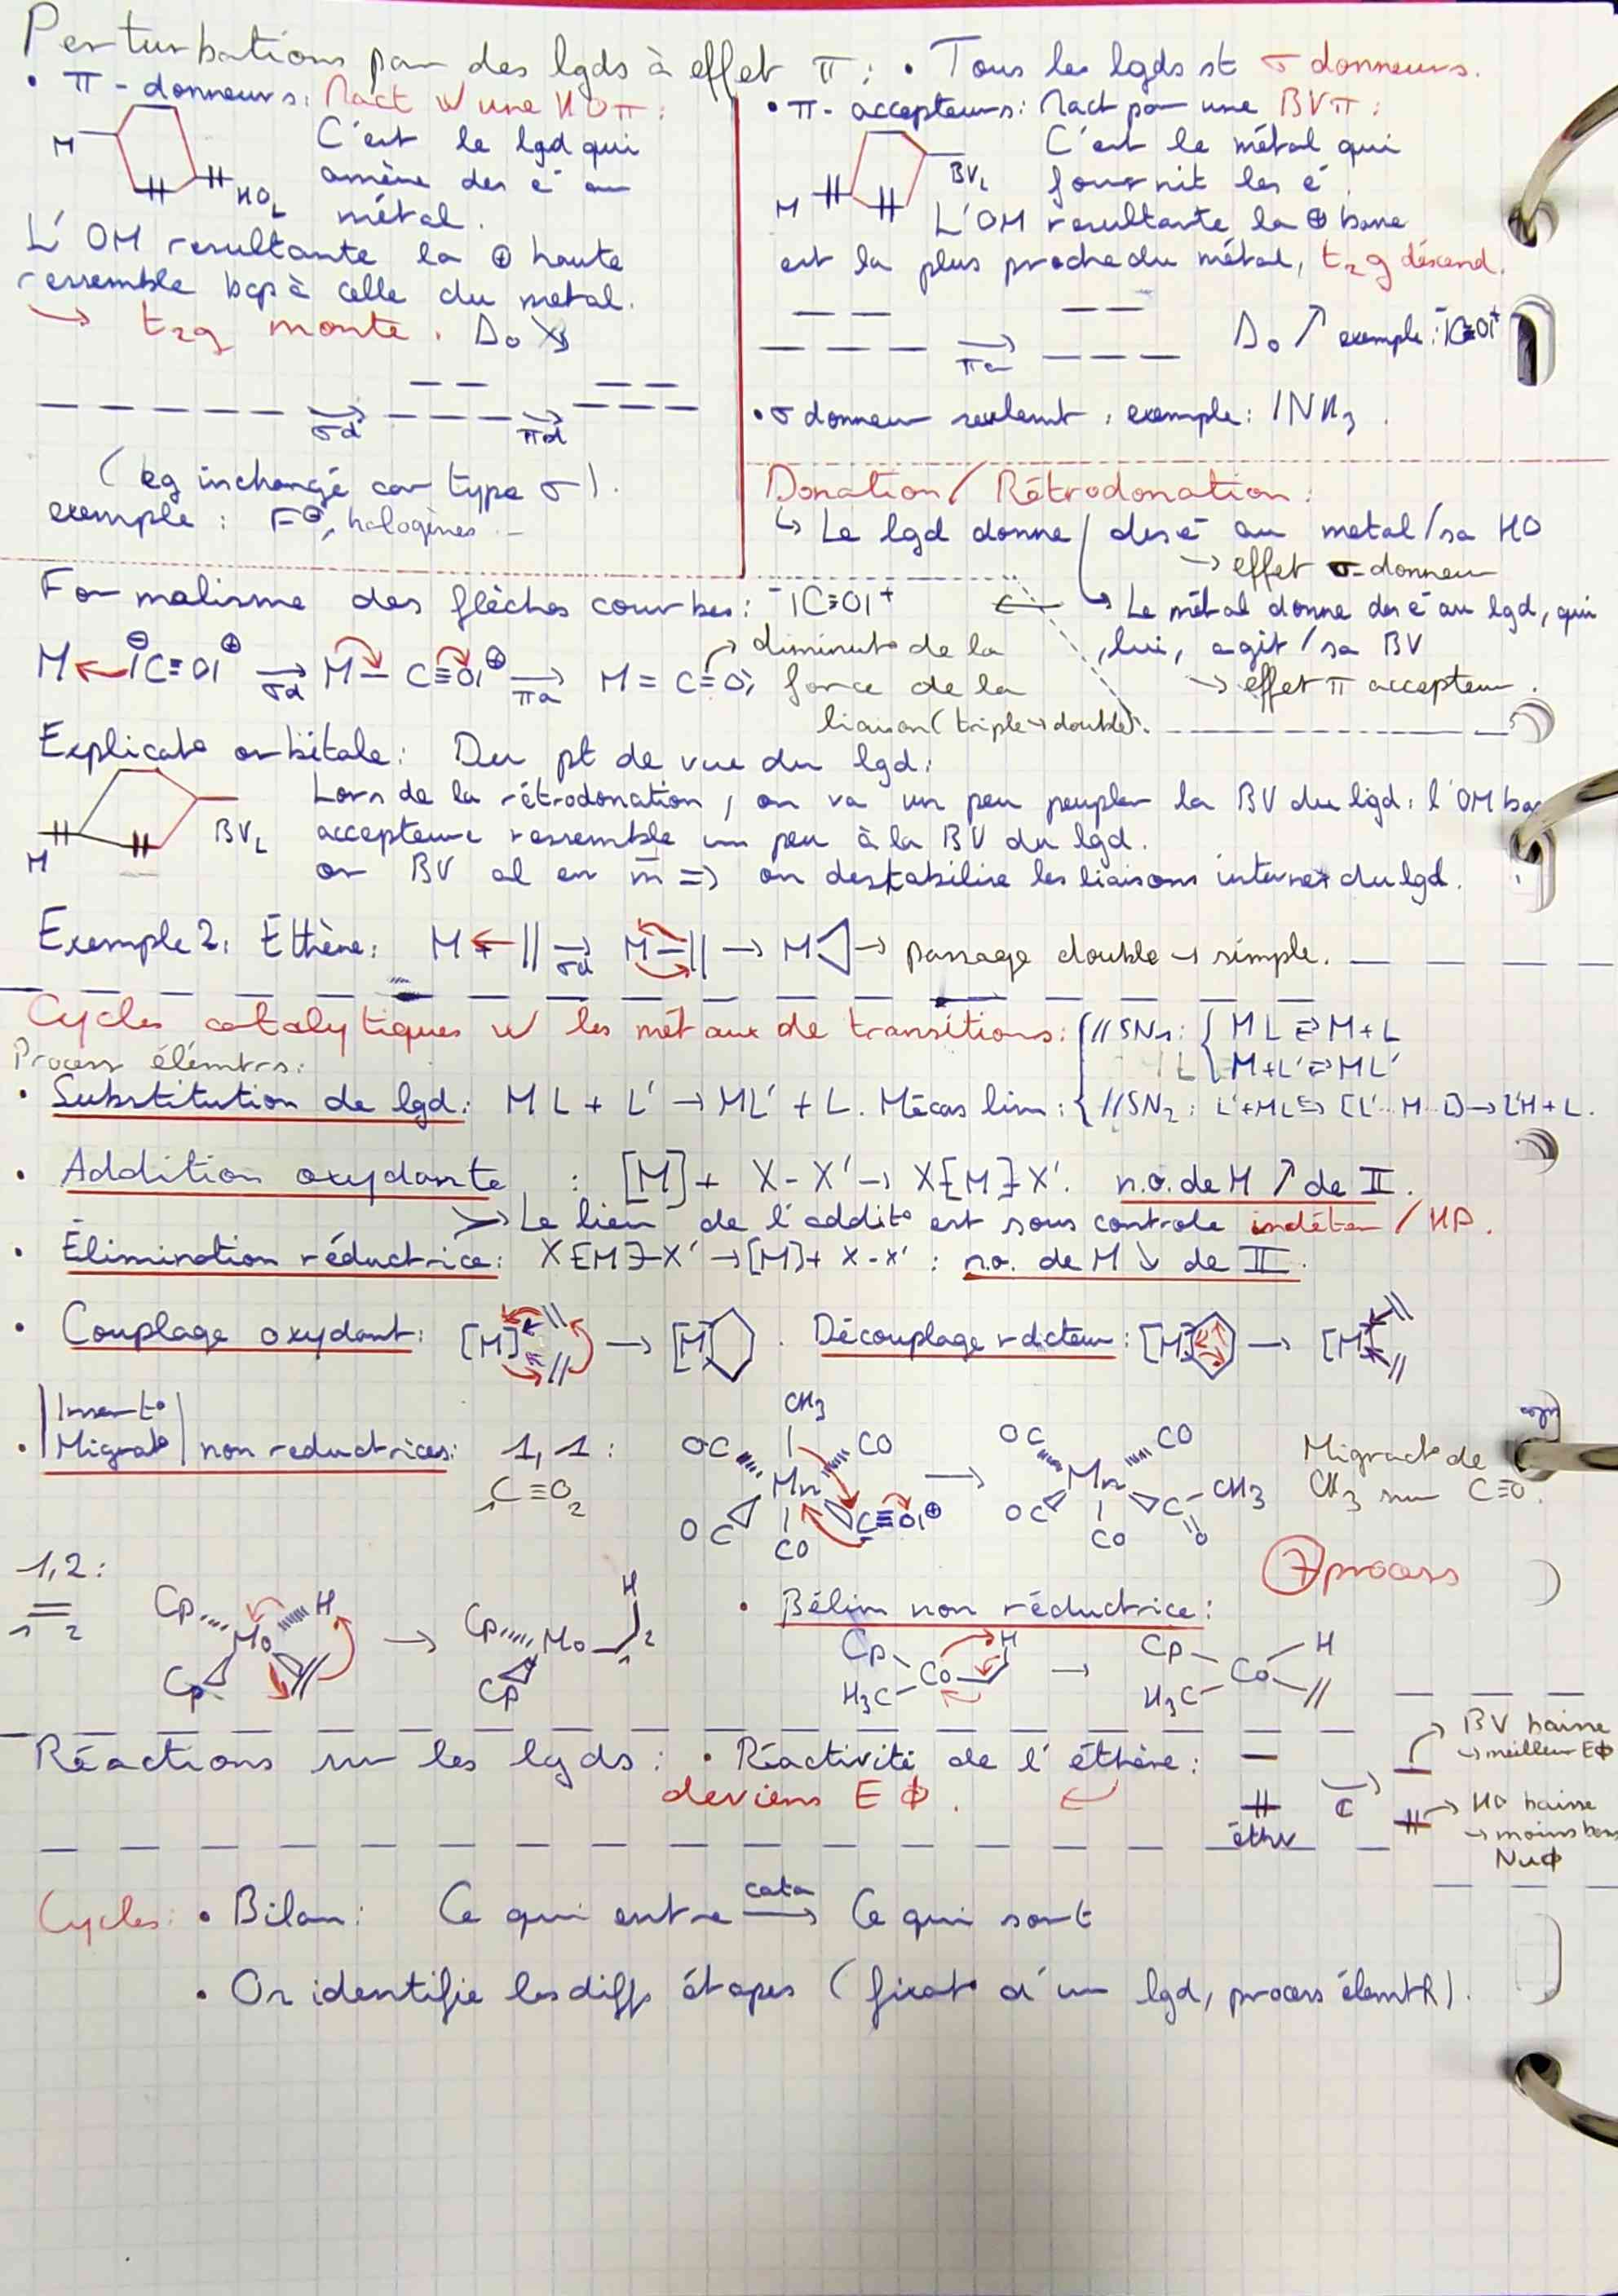 Perturbations par des lgds à effet π : • Tous les lgds st σ donneurs.
• π-donneurs : Ract w une HOπ :
M
HO_L
C'est le lgd qui
amène des e⁻ au
métal.
L'OM resultante la ⊕ haute
ressemble bcp à celle du metal.
→ t₂g monte. Δ₀ ↘
σd
πd
(eg inchangé car type σ).
exemple : F⊖, halogènes ...
• π-accepteurs : Ract par une BVπ :
M
BV_L
C'est le métal qui
fournit les e⁻.
L'OM resultante la ⊕ basse
est la plus proche du métal, t₂g déscend.
πa
Δ₀ ↗ exemple : ⁻|C≡O|⁺
• σ donneur seulemt, exemple : |NH₃.
Donation / Rétrodonation :
↳ Le lgd donne / des e⁻ au metal / sa HO
→ effet σ-donneur
↳ Le métal donne des e⁻ au lgd, qui
lui, agit / sa BV
→ effet π accepteur.
Formalisme des flèches courbes : ⁻|C≡O|⁺
M ← ⊖|C≡O|⊕ →σd M – C≡O|⊕ →πa M = C = O ; diminut° de la
force de la
liaison (triple → double).
Explicat° orbitale : Du pt de vue du lgd :
M
BV_L
Lors de la rétrodonation, on va un peu peupler la BV du ligd : l'OM bas
accepteur ressemble un peu à la BV du lgd.
or BV al en m̄ => on destabilise les liaisons internes du lgd.
Exemple 2 : Ethène : M ← || →σd M – || → M → passage double → simple.
Cycles catalytiques w les métaux de transitions :
Process élémtrs :
• Substitution de lgd : ML + L' → ML' + L. Mécas lim :
//SN₁ : ML ⇌ M + L
M + L' ⇌ ML'
//SN₂ : L' + ML ⇌ [L'...M...L] → L'M + L.
• Addition oxydante : [M] + X-X' → X[M]X'. n.o. de M ↗ de II.
→ Le lieu de l'addit° est sous controle / HP.
• Élimination réductrice : X[M]-X' → [M] + X-X' : n.o. de M ↘ de II.
• Couplage oxydant : [M] → [M]. Découplage rdcteur : [M] → [M]
• Insert°
Migrat° non reductrices : 1,1 :
₁C≡O₂
CH₃
OC CO
Mn
OC C≡O|⊕
CO
→
OC CO
Mn
OC C-CH₃
CO O
Migrat° de
CH₃ sur C≡O.
1,2 :
1 = 2
Cp H
Mo
Cp
→
Cp Mo H
Cp 1 2
⑦ process
• βélim non réductrice :
Cp Co H
H₃C
→
Cp Co H
H₃C
Réactions sur les lgds : • Réactivité de l'éthène :
deviens EΦ.
éthn
C
BV baisse
→ meilleur EΦ
HO baisse
→ moins bon
NuΦ
Cycles : • Bilan : Ce qui entre →cata Ce qui sort
• On identifie les diffs étapes (fixat° d'un lgd, process élemtR).